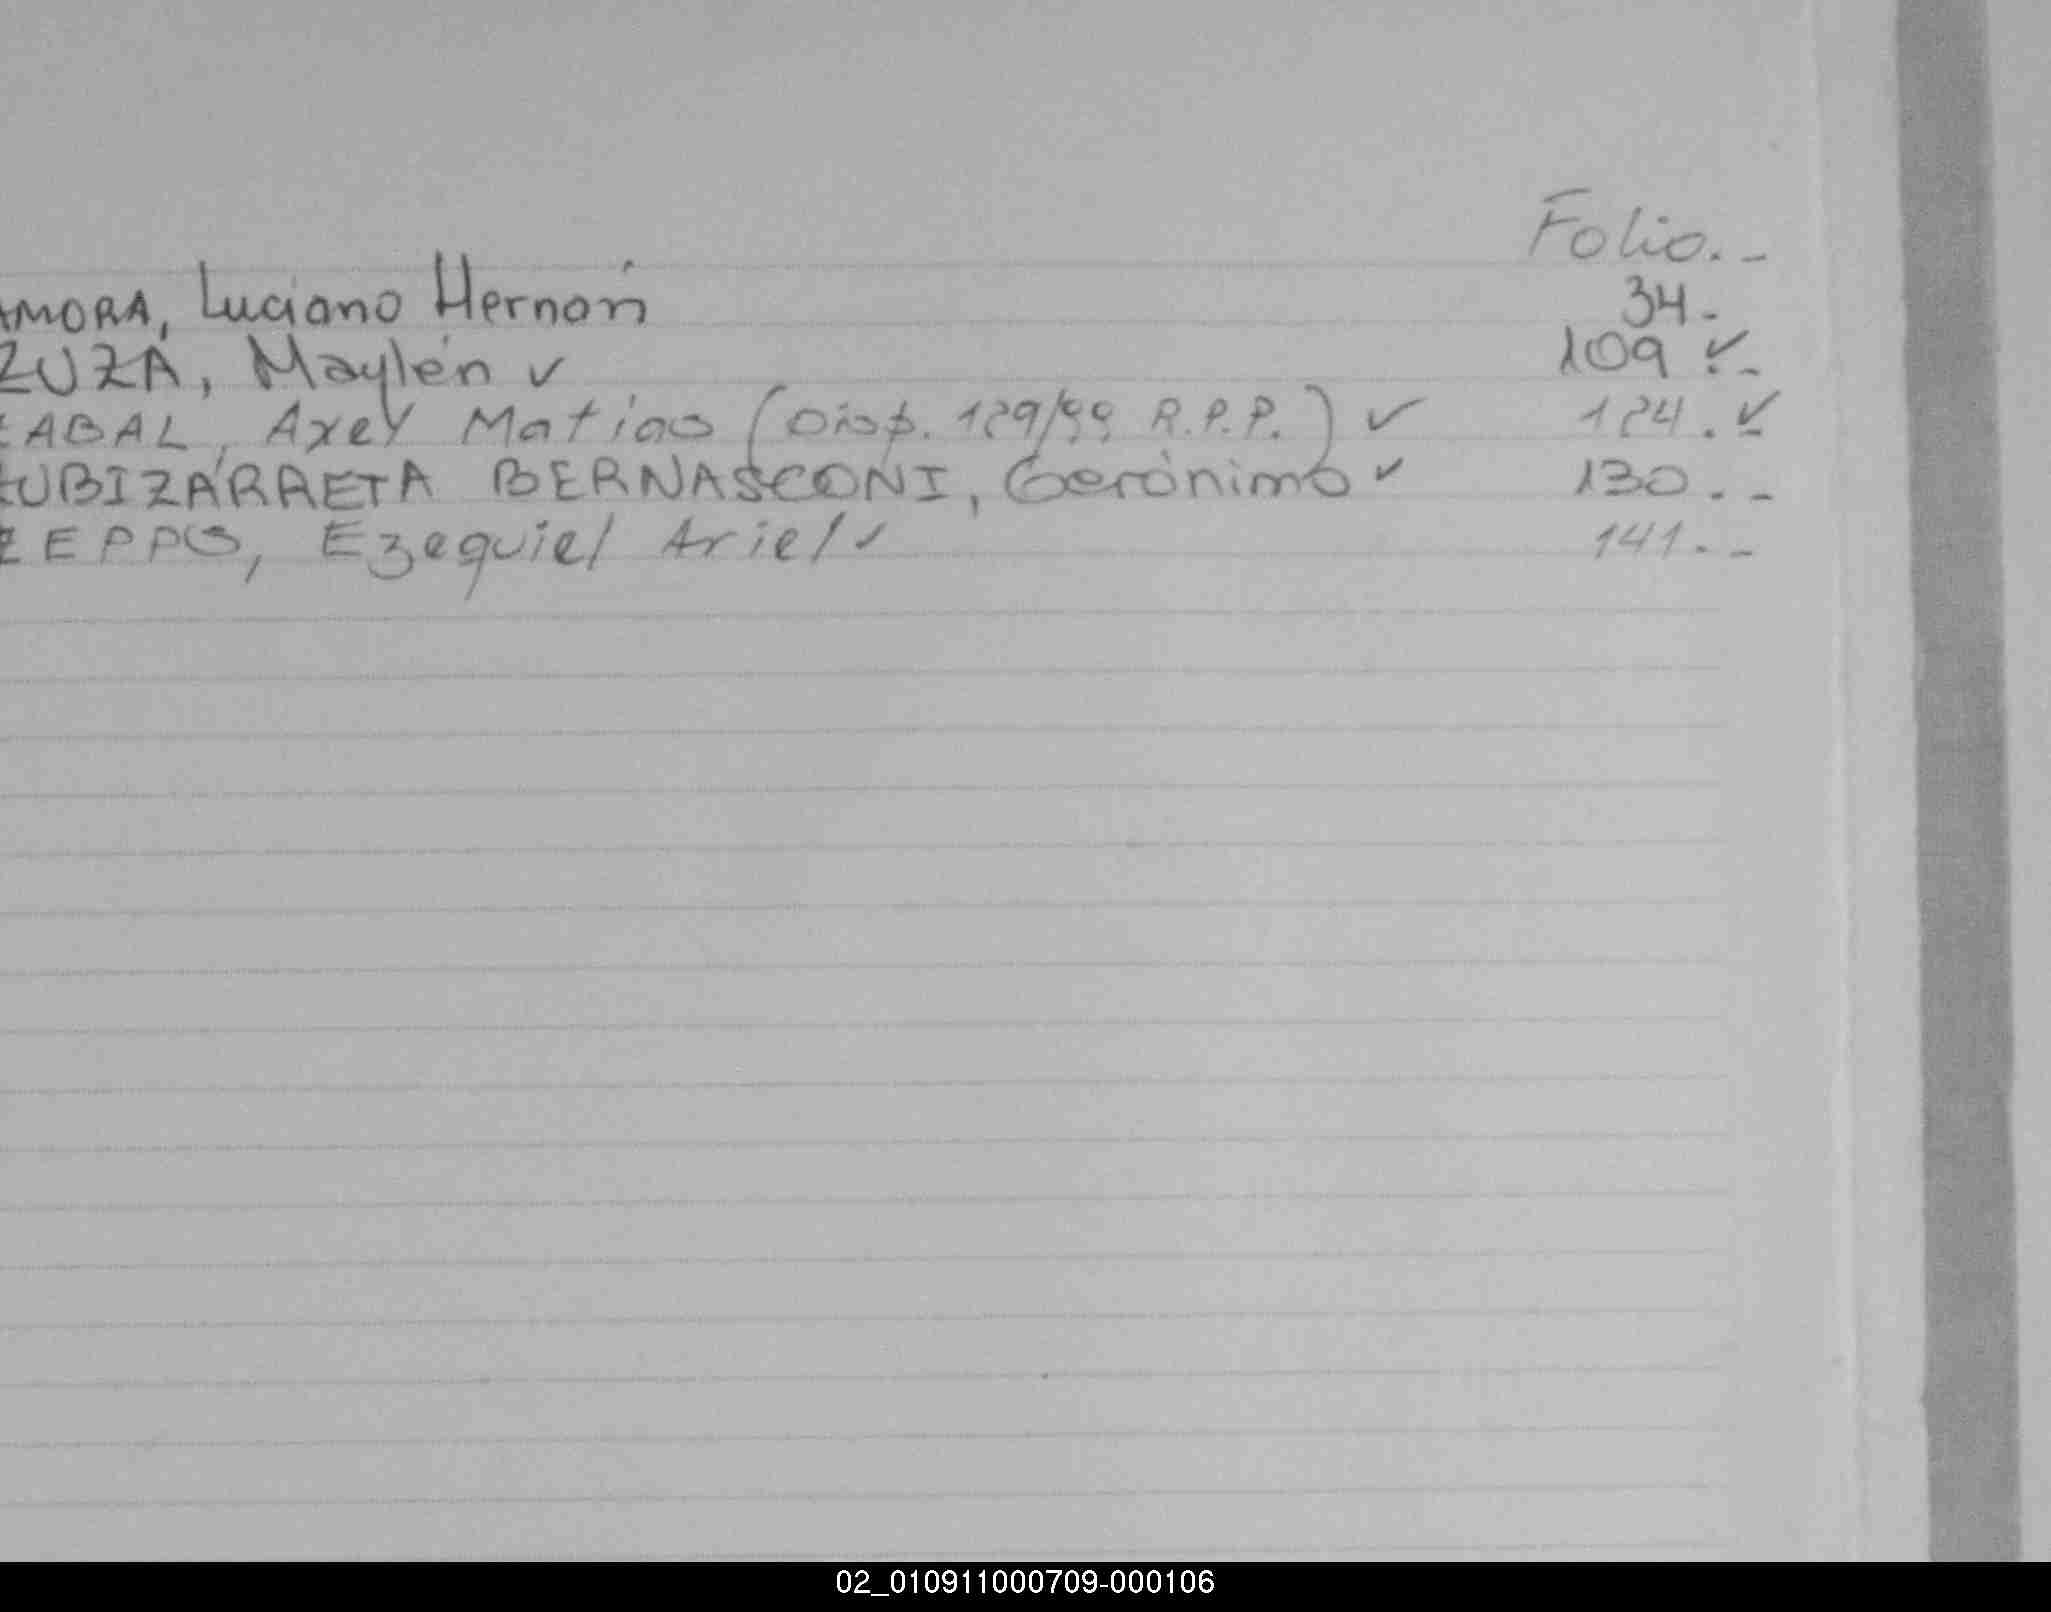 Folio._
AMORA, Luciano Hernán 34._
ZUZA, Maylén ✓ 109 ✓._
ZABAL, Axel Matias (Disp. 129/99 R.P.P.) ✓ 124. ✓_
ZUBIZARRETA BERNASCONI, Gerónimo ✓ 130._
ZEPPO, Ezequiel Ariel ✓ 141._
02_010911000709-000106